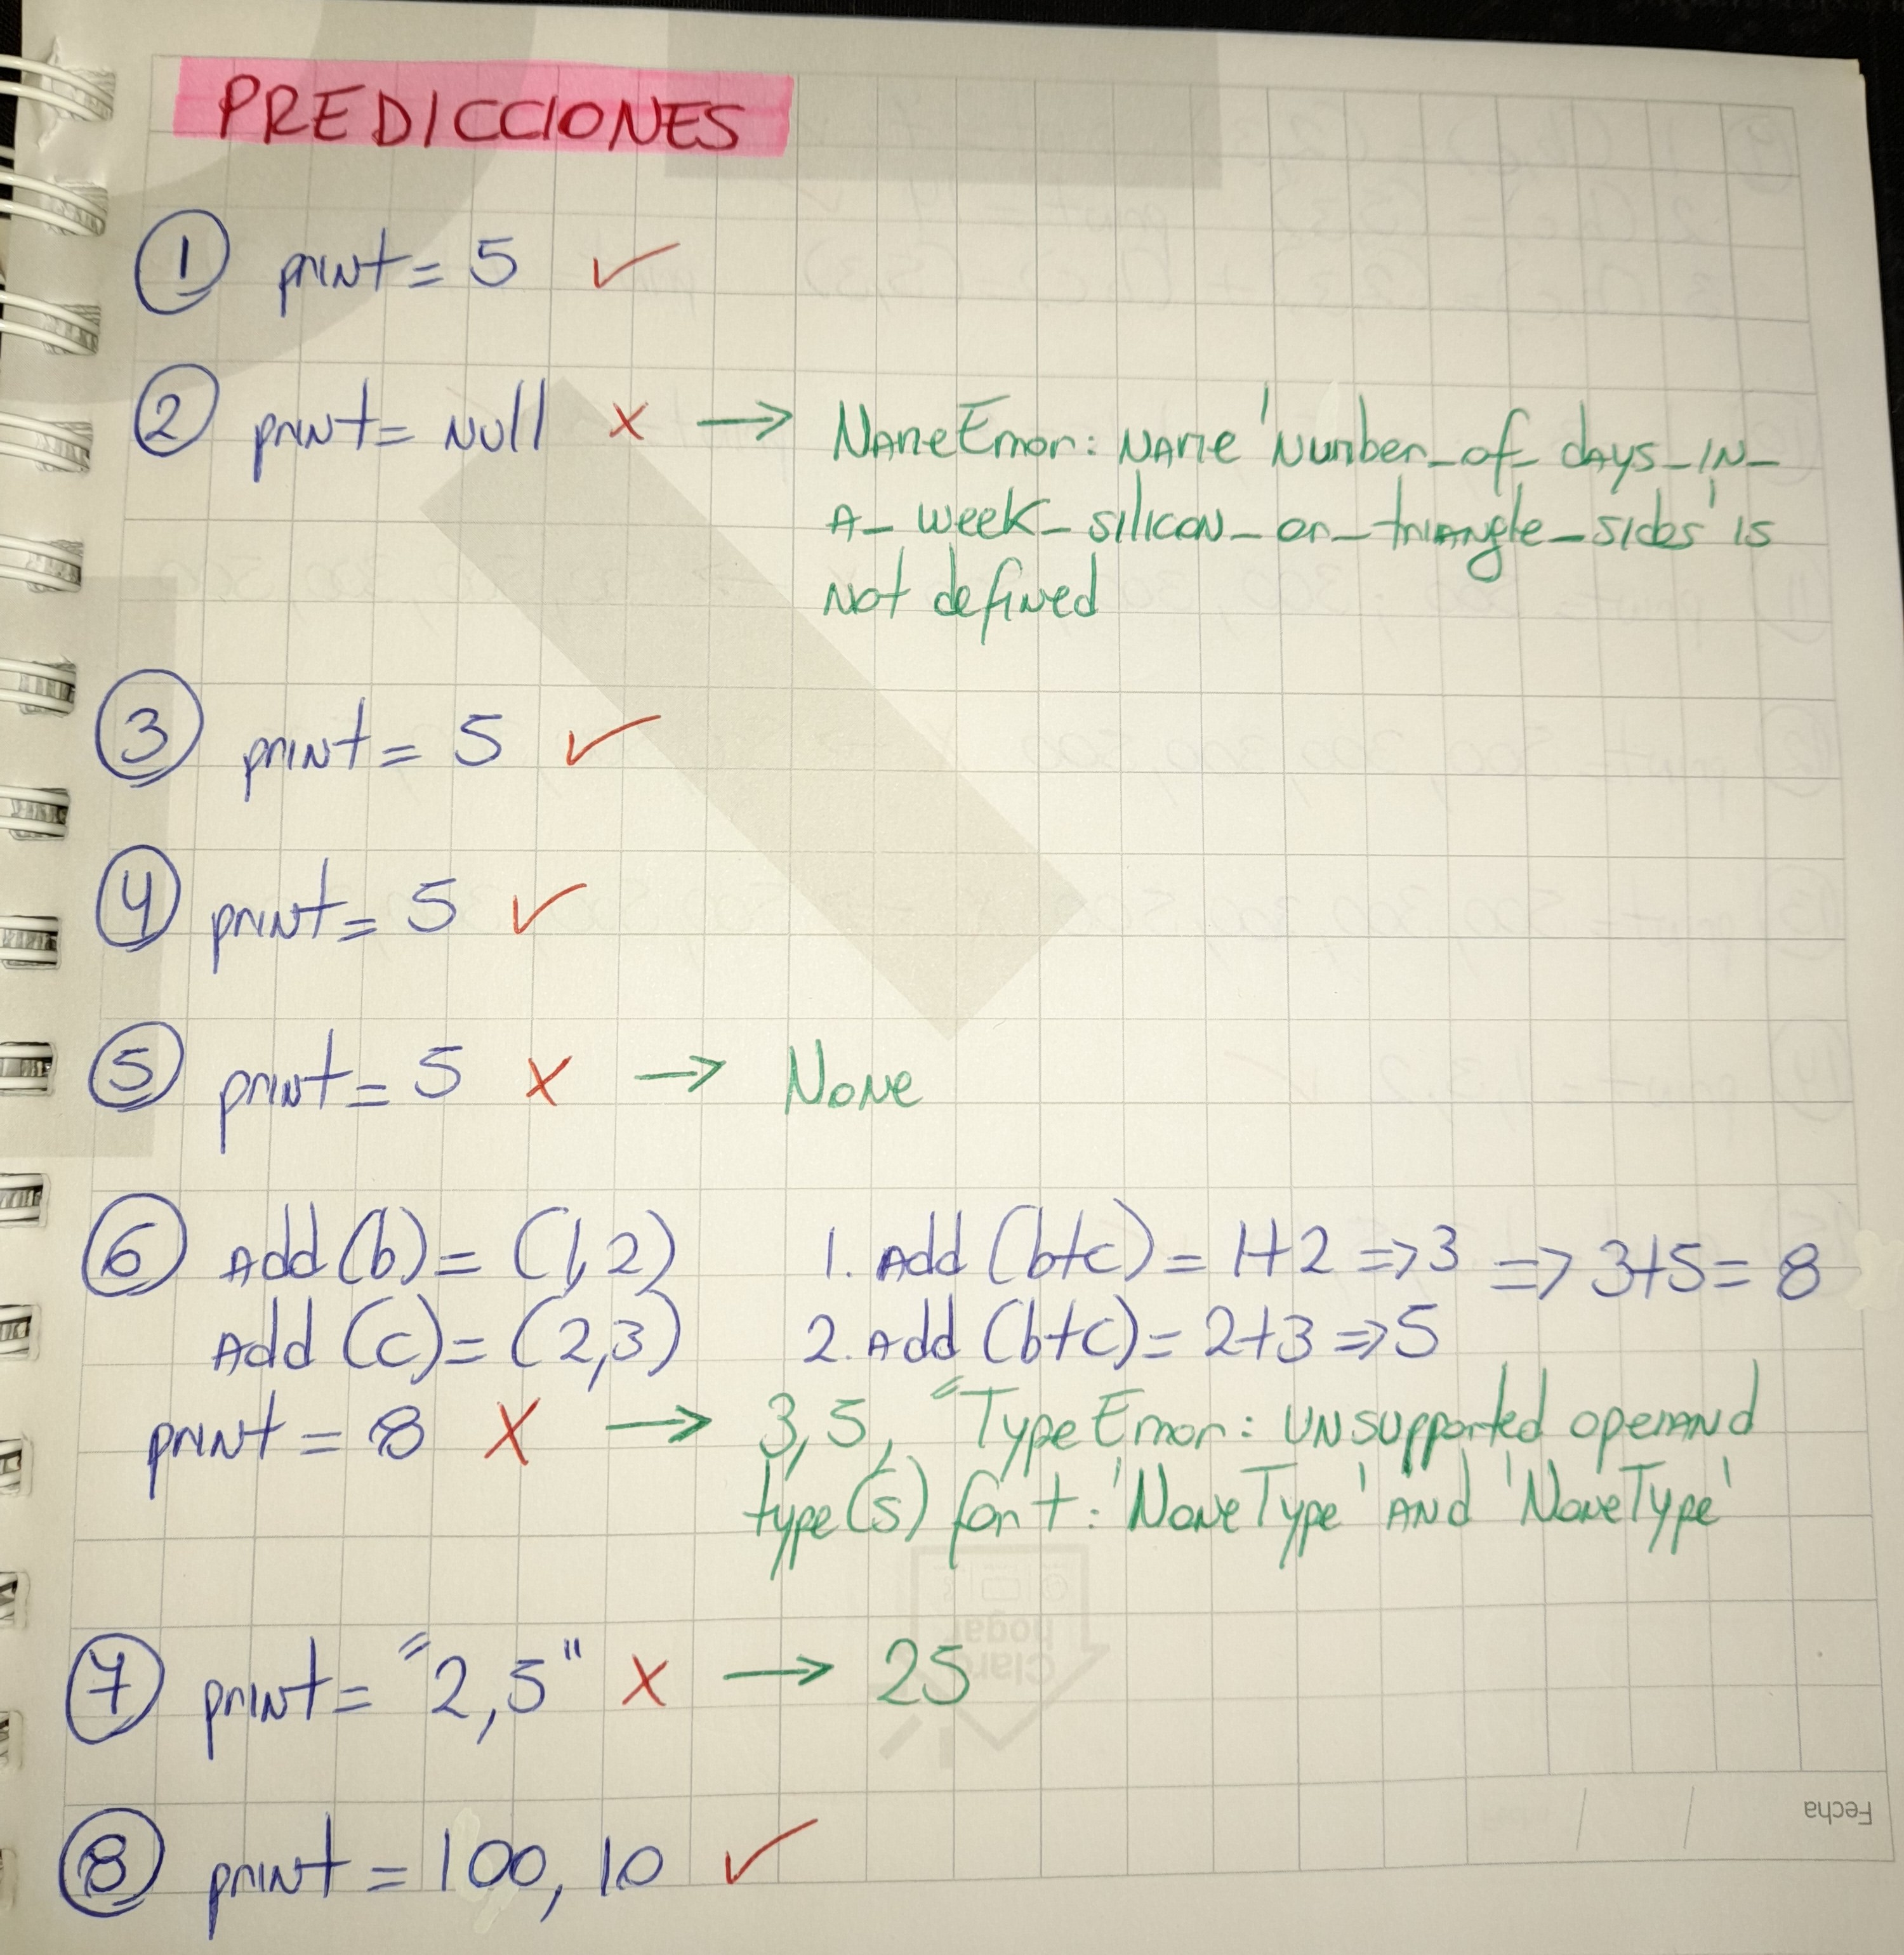 PREDICCIONES
① print = 5 ✓
② print = Null x → NameError: Name 'Number_of_days_in_
a_week_silicon_or_triangle_sides' is
Not defined
③ print = 5 ✓
④ print = 5 ✓
⑤ print = 5 x → None
⑥ Add (b) = (1,2) 1. Add (b+c) = 1+2 => 3 => 3+5 = 8
Add (c) = (2,3) 2. Add (b+c) = 2+3 => 5
print = 8 X → 3, 5, "TypeError: unsupported operand
type(s) for +: 'NoneType' and 'NoneType'
⑦ print = "2,5" x → 25
⑧ print = 100, 10 ✓
Claro
hogar
Fecha